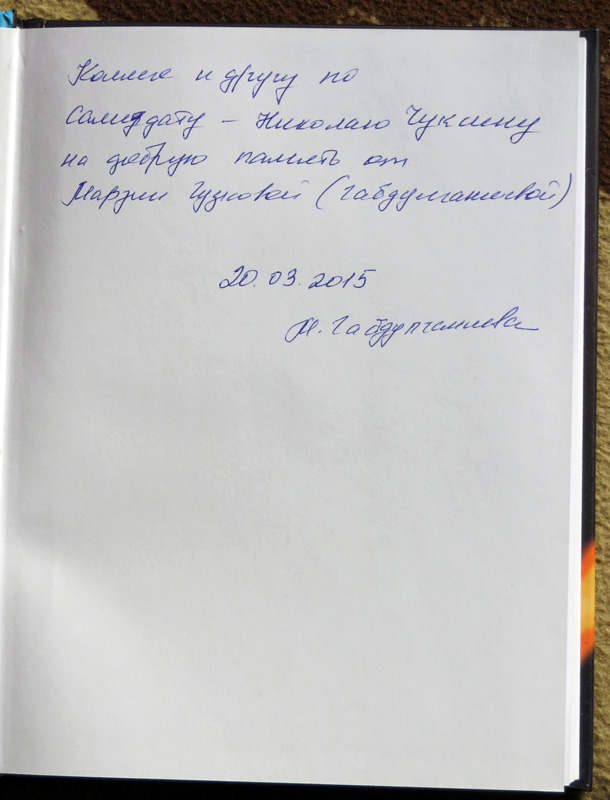 Коллеге и другу по
Самиздату – Николаю Чуксину
на добрую память от
Марзии (Габдулганиевой)
20.03.2015
М. Габдулганиева